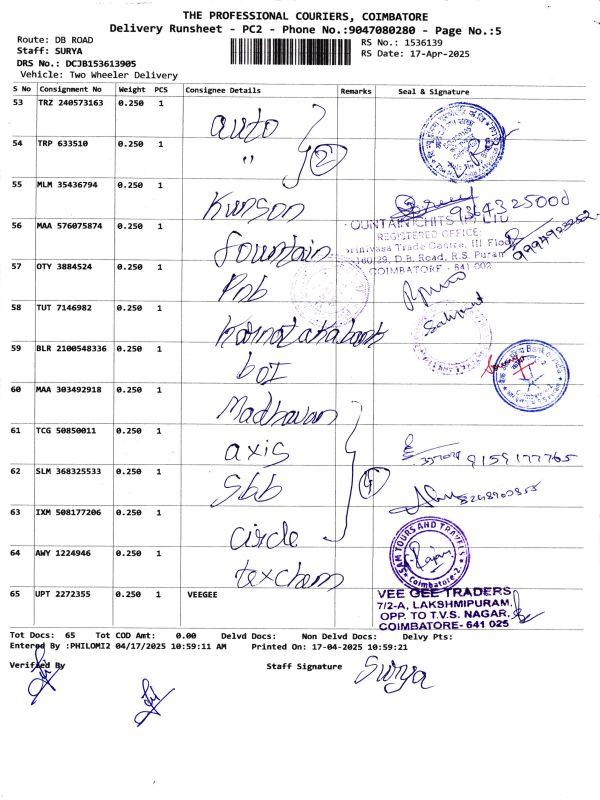 THE PROFESSIONAL COURIERS, COIMBATORE
Delivery Runsheet - PC2 - Phone No.:9047080280 - Page No.:5
Route: DB ROAD
Staff: SURYA
DRS No.: DCJB153613905
Vehicle: Two Wheeler Delivery
RS No.: 1536139
RS Date: 17-Apr-2025
S No Consignment No Weight PCS Consignee Details Remarks Seal & Signature
53 TRZ 240573163 0.250 1 auto
54 TRP 633510 0.250 1 "
2
55 MLM 35436794 0.250 1 Kunson
56 MAA 576075874 0.250 1 fountain
REGISTERED OFFICE:
Srinivasa Trade Centre, III Floor
D.B. Road, R.S. Puram
COIMBATORE - 641 002
9994923252
57 OTY 3884524 0.250 1 Pnb
58 TUT 7146982 0.250 1 Karnataka bank
59 BLR 2100548336 0.250 1 boI
60 MAA 303492918 0.250 1 Madhavan
61 TCG 50850011 0.250 1 axis
9159177765
4
62 SLM 368325533 0.250 1 Sbb
63 IXM 508177206 0.250 1 circle
SAM TOURS AND TRAVELS
Coimbatore-2.
64 AWY 1224946 0.250 1 texcham
65 UPT 2272355 0.250 1 VEEGEE
VEE GEE TRADERS
7/2-A, LAKSHMIPURAM,
OPP. TO T.V.S. NAGAR,
COIMBATORE- 641 025
Tot Docs: 65 Tot COD Amt: 0.00 Delvd Docs: Non Delvd Docs: Delvy Pts:
Entered By :PHILOMI2 04/17/2025 10:59:11 AM Printed On: 17-04-2025 10:59:21
Verified By Staff Signature Surya